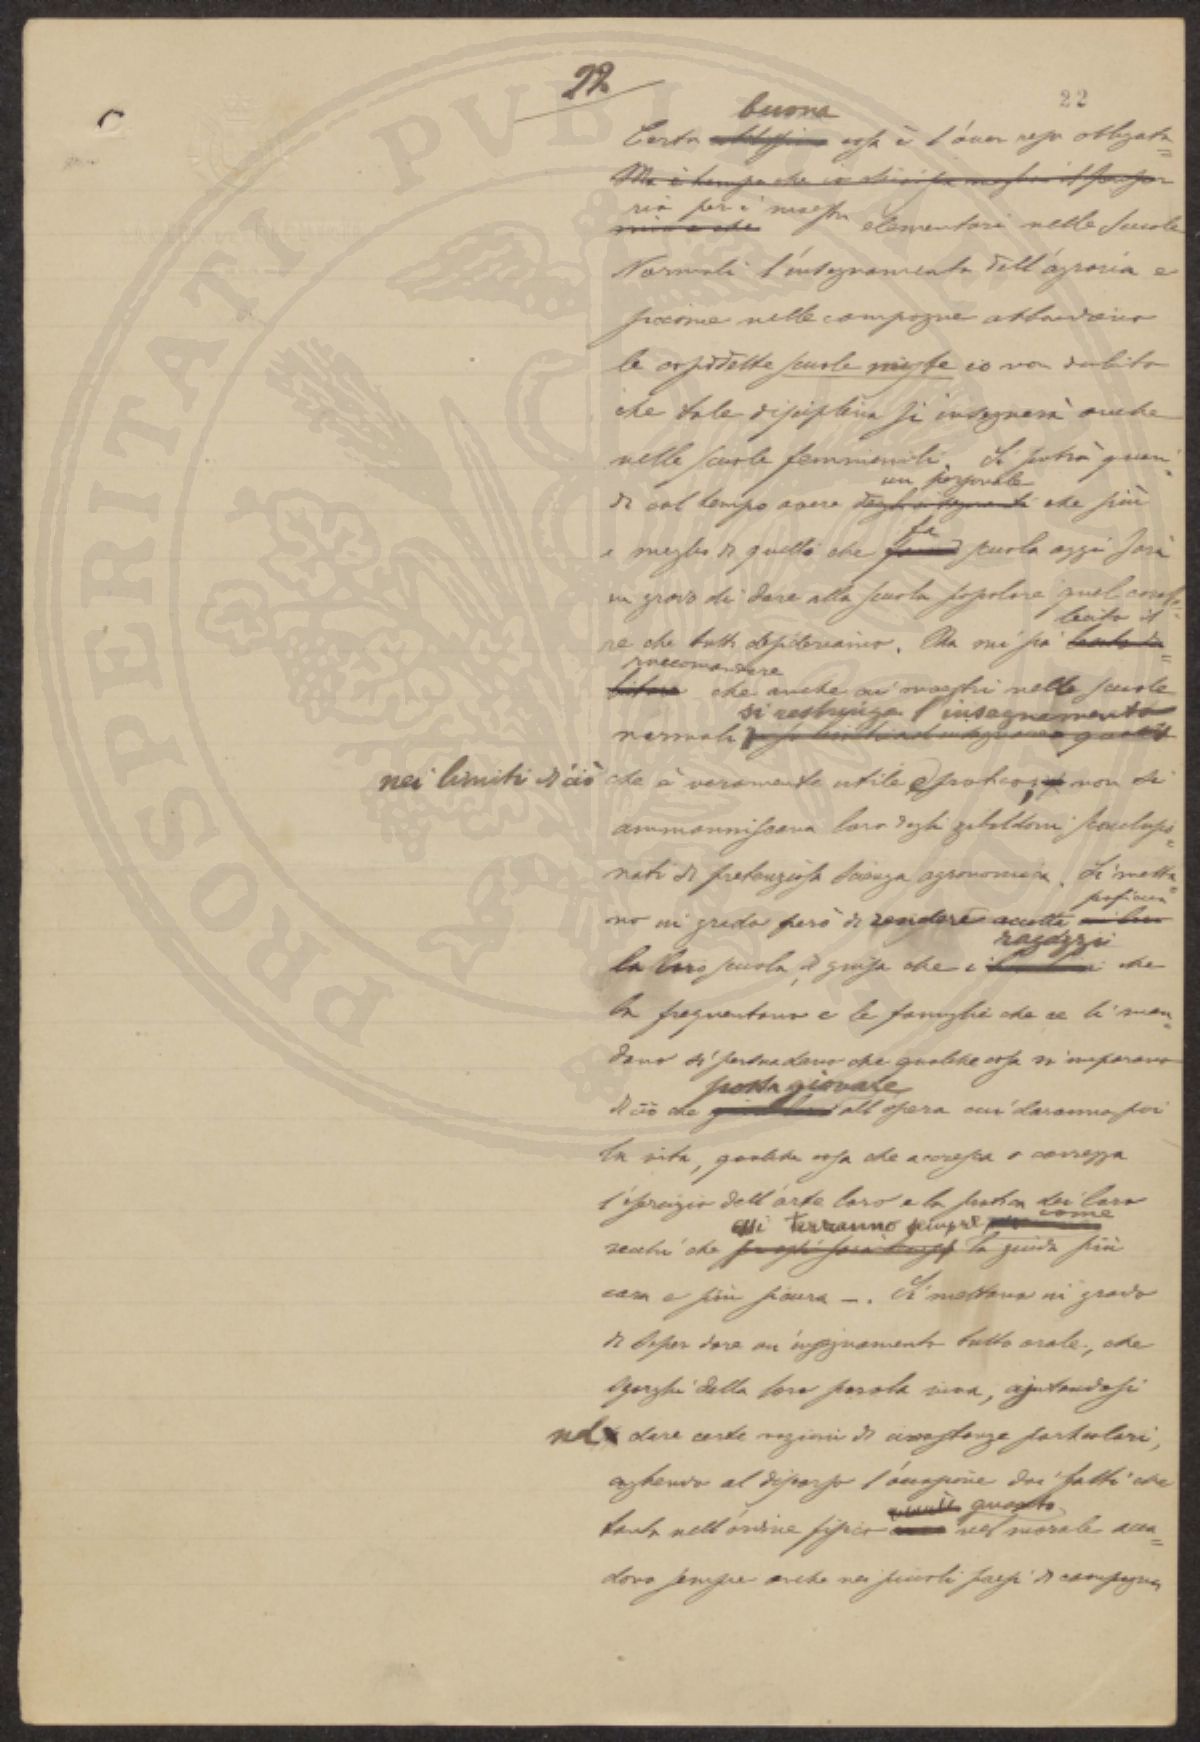 22
22
buona
Certa cosa è l'aver resa obbligato=
Ma è tempo che io
ria per i maestri elementari nelle scuole
Normali l'insegnamento dell'agraria e
siccome nelle campagne abbondano
le cosiddette scuole miste io non dubito
che tale disciplina si insegnerà anche
nelle scuole femminili. Si potrà quin=
un personale
di col tempo avere degli insegnanti che più
fa
e meglio di quello che scuola oggi sarà
in grado di dare alla scuola popolare quel caratte=
lecito il
re che tutti desideriamo. Ma mi sia
raccomandare
che anche ai maestri nelle scuole
si restringa l'insegnamento
normali
nei limiti di ciò che è veramente utile e pratico; non si
ammanniscano loro degli zibaldoni sconclusio=
nati di pretenziosa scienza agronomica. Si metta
proficua
no in grado però di rendere accetta ai loro
ragazzi
la loro scuola, di guisa che i che
la frequentano e le famiglie che ce li man=
dano si persuadano che qualche cosa vi imparano
possa giovare
di ciò che all'opera cui daranno poi
la vita, qualche cosa che accresca o corregga
l'esercizio dell'arte loro e la pratica dei loro
essi terranno sempre come
vecchi che la guida più
cara e più sicura —. Si mettano in grado
di saper dare un insegnamento tutto orale, che
sgorghi della loro parola viva, ajutandosi
nel dare certe nozioni di circostanze particolari,
cogliendo al discorso l'occasione dai fatti che
quanto
tanto nell'ordine fisico nel morale acca=
dono sempre anche nei piccoli paesi di campagna
PROSPERITATI PVBLICAE